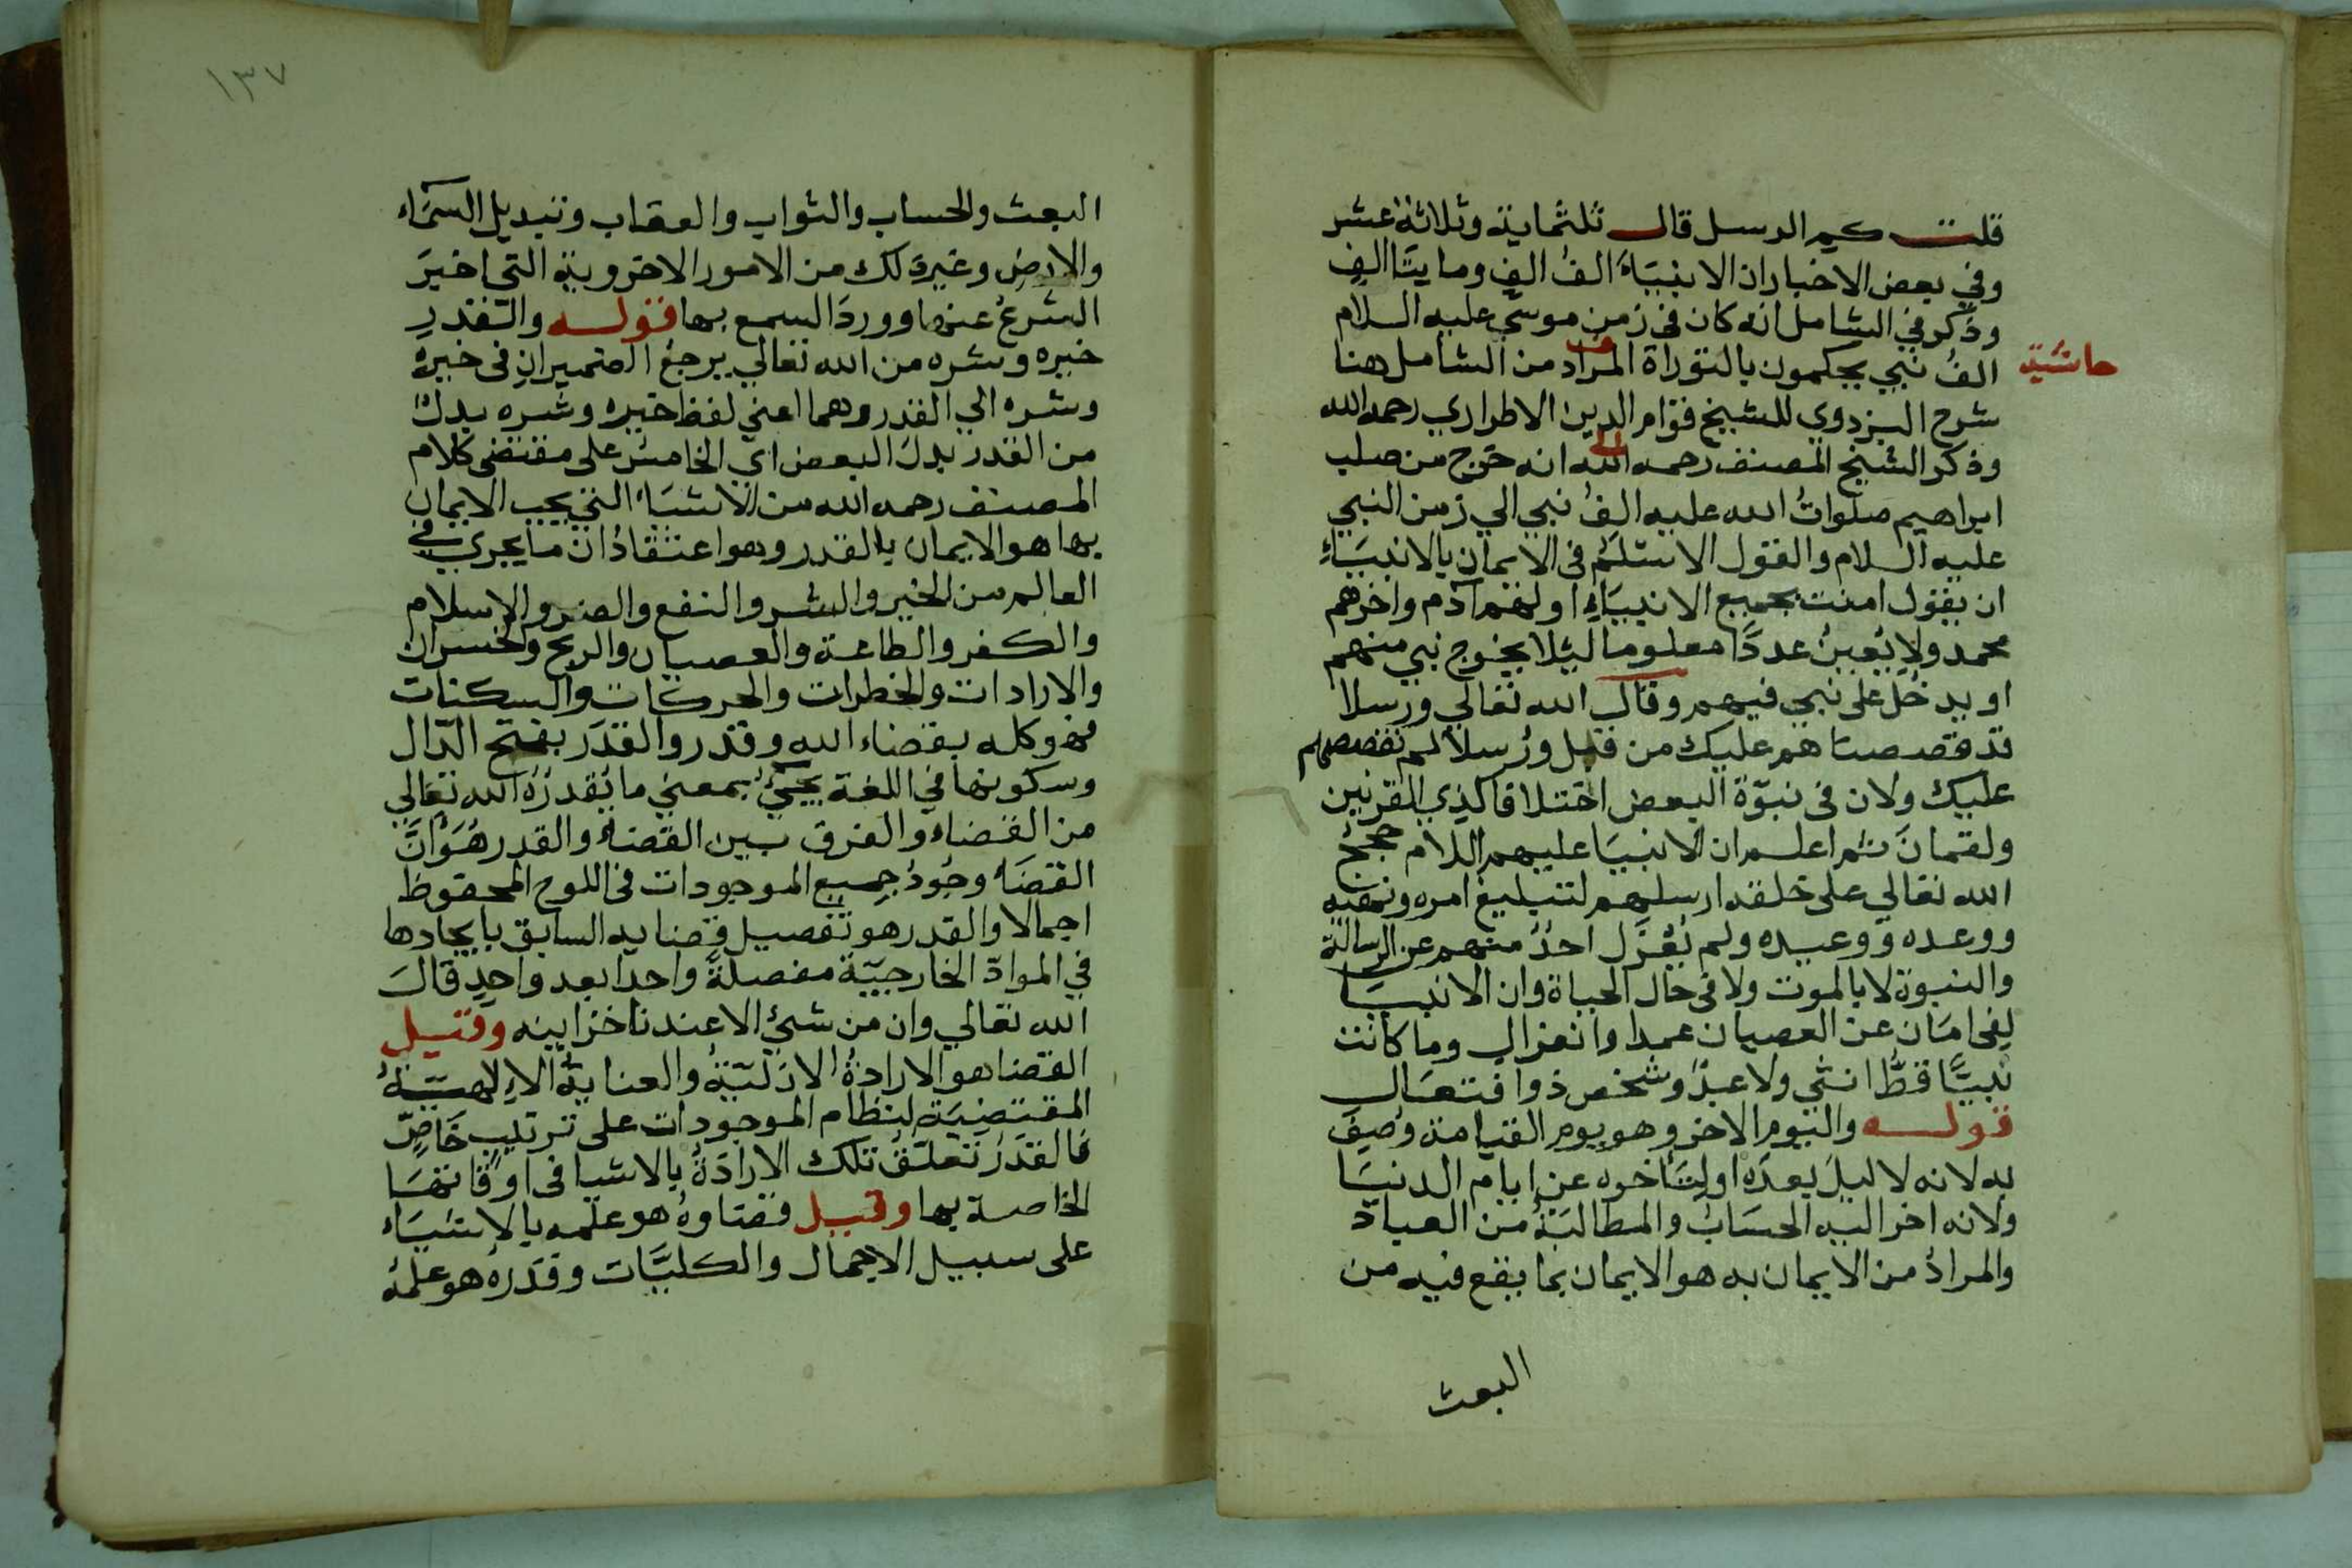 قلت كم الرسل قال ثلثماية وثلاثة عشر
وفي بعض الاخبار ان الانبيَاءَ الفُ الفٍ ومايتَا الفٍ
وذكر في الشامل انه كان في زمن موسي عليه السلام
حاشية
الفُ نبي يحكمون بالتوراة المراد من الشامل هنا
شرح البزدوي للشيخ قوام الدين الاطراري رحمه الله
وذكر الشيخ المصنف رحمه الله انه خرج من صلب
ابراهيم صلواتُ الله عليه الفُ نبي الي زمن النبي
عليه السلام والقول الاسلم في الايمان بالانبيَاءِ
ان يقول امنت بجميع الانبيَاءِ اولهم آدم واخرهم
محمد ولا يُعينُ عددًا معلوما ليلا يخرج نبي منهم
او يدخُل على نبي فيهم وقال الله تعالي ورسلا
قد قصصناهم عليك من قبل ورُسلا لم نقصصهم
عليك ولان في نبوّة البعض اختلافا كذي القرنين
ولقمانَ ثم اعلم ان الانبيَا عليهم السلام حججُ
الله تعالي على خلقه ارسلهم لتبليغ امره ونهيه
ووعده ووعيده ولم يُعْزَل احدٌ منهم عن الرسالة
والنبوة لا بالموت ولا في حال الحياة وان الانبيَا
لفي امَان عن العصيان عمدا وانعزال وما كانت
نبيًّا قطُّ انثي ولا عبدٌ وشخص ذو افتعَال
قوله واليوم الاخر وهو يوم القيامة وُصِفَ
به لانه لا ليلَ بعدَه او لتَأخره عن ايام الدنيَا
ولانه اخر اليه الحسَابُ والمطالبَةُ من العباد
والمرادُ من الايمان به هو الايمان بما يقع فيه من
البعث
١٣٧
البعث والحساب والثواب والعقاب وتبديل السمَاء
والارض وغير ذلك من الامور الاخروية التي اخبرَ
الشرعُ عنها ووردَ السمع بها قوله والقدرِ
خيره وشره من الله تعالي يرجعُ الضميرانِ في خيره
وشره الي القدر وهما اعني لفظ خيره وشره بدلٌ
من القدر بدلَ البعض اي الخامس على مقتضى كلام
المصنف رحمه الله من الاشيَاء التي يجب الايمان
بها هو الايمان بالقدر وهو اعتقادُ ان ما يجري في
العالم من الخير والشر والنفع والضر والاسلام
والكفر والطاعة والعصيان والربح والخسران
والارادات والخطرات والحركات والسكنات
فهو كله بقضاء الله وقدر والقدَر بفتح الدّال
وسكونها في اللغة يجيُ بمعني ما يُقدرُه الله تعالي
من القضاء والفرق بين القضاء والقدر هُوَ انَّ
القضَاءَ وجُودُ جميع الموجودات في اللوح المحفوظ
اجمالا والقدر هو تفصيل قضايه السابق بايجادها
في الموادّ الخارجيّة مفصلةً واحدا بعد واحدٍ قالَ
الله تعالي وان من شئ الا عندنا خزاينه وقيل
القضا هو الارادةُ الازليّةُ والعنايةُ الالهيّةُ
المقتضِيَة لنظام الموجودات على ترتيب خَاصّ
فالقدَرُ تعلّقُ تلك الارادَةُ بالاشيا في اوقاتهَا
الخاصة بها وقيل قضاوهُ هو علمه بالاشيَاءِ
على سبيل الاجمال والكليَّات وقدرُه هو علمُه